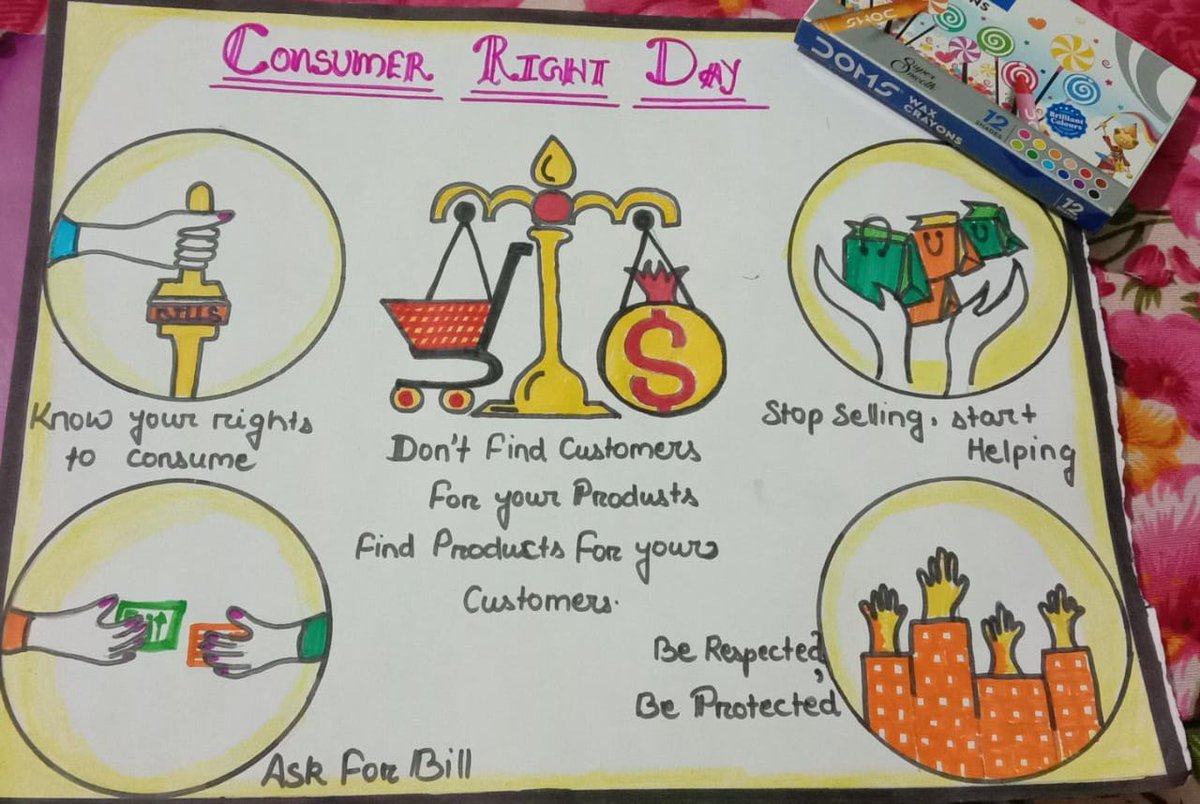 CONSUMER RIGHT DAY
DOMS
DOMS
Super
Smooth
WAX
CRAYONS
12
SHADES
Brilliant
Colours
12
Know your rights
to consume
Don't Find Customers
For your Produsts
Find Products For your
Customers.
Stop Selling, start
Helping
Be Respected,
Be Protected
Ask For Bill